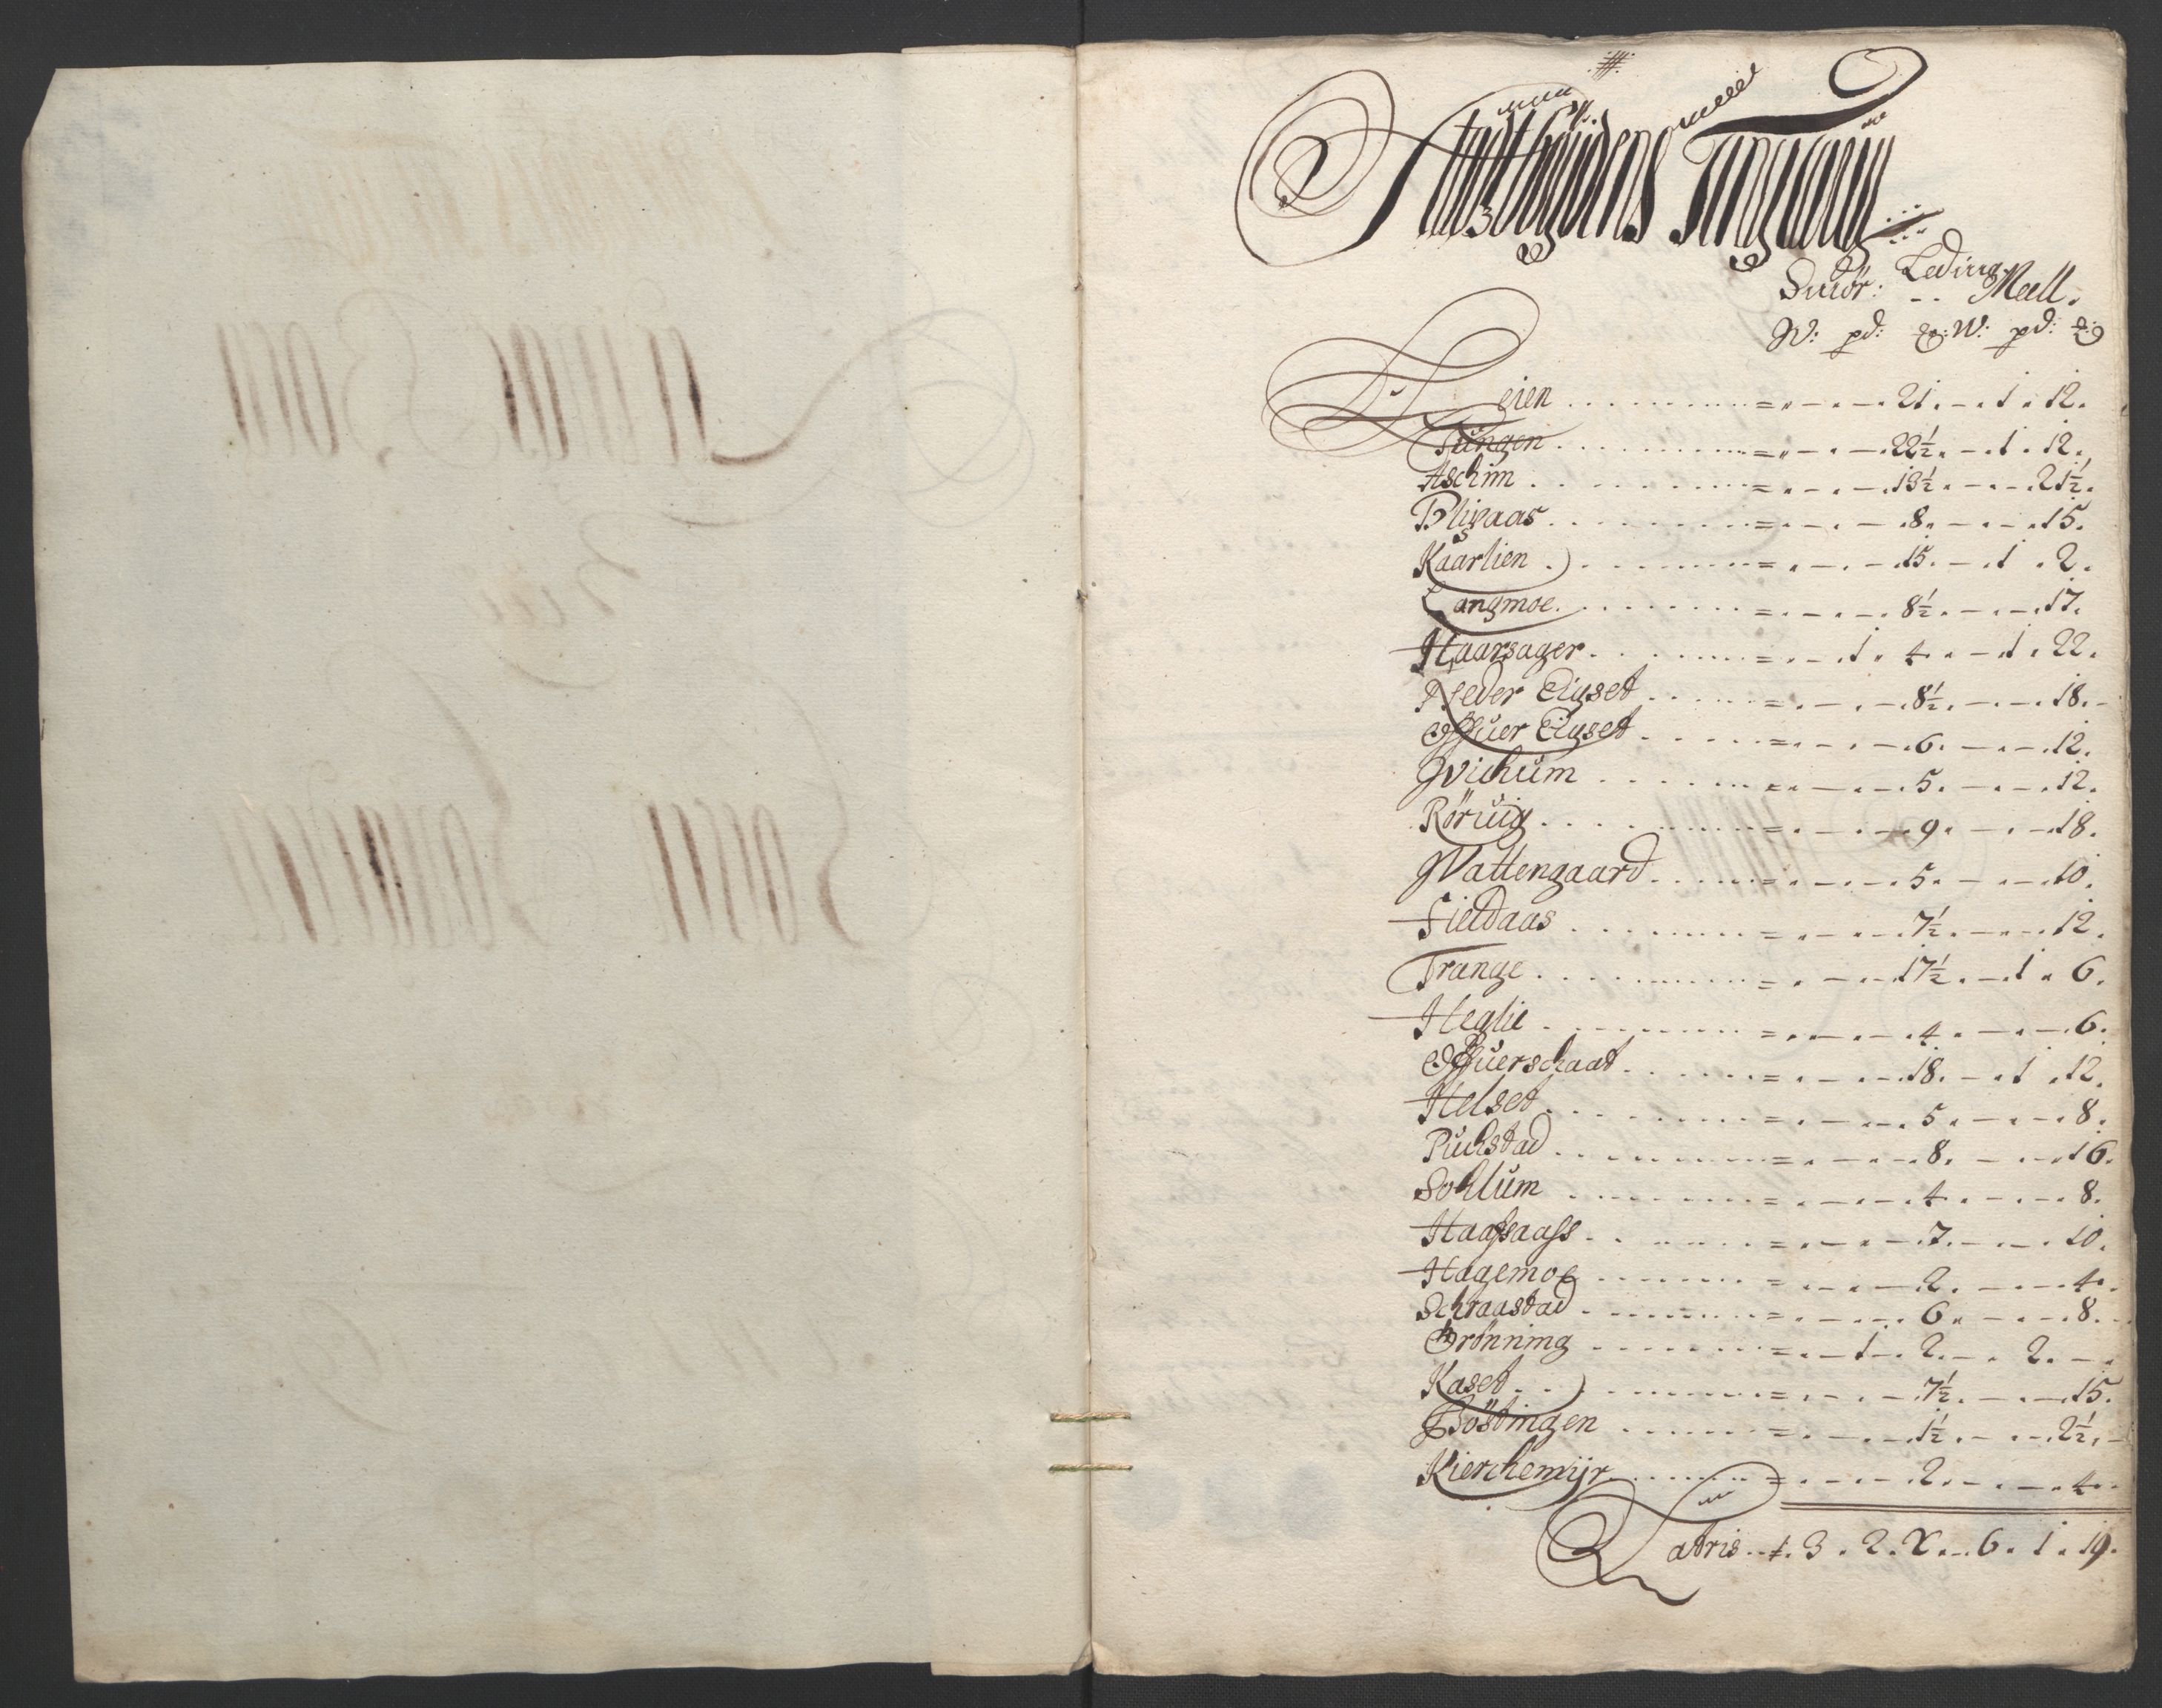 Stadtzbÿgdens Tinglaug
Leding
Smör: .. Meell.
W: pd: ℔: W: pd: ℔
Feien = " 21. 1 " 12.
Tüngen = " 22½ " 1 . 12.
Aschim = " 13½ " 21½.
Blisaas = 8 " 15.
Kaarlien = " 15. 1 . 2.
Langmoe. = 8½ " 17.
Haarsager = 1 " 4 " 1 . 22.
Neder Eigset = 8½. 18.
Offuer Eigset = 6. 12.
Wichum = 5. 12.
Röruig = 9 " 18.
Wattengaard = 5 " 10.
Fieldaas = 7½. 12.
Trange = 17½. 1 " 6.
Heglie = 4. 6.
Offuerschaat = 18. 1 . 12.
Helset = 5. 8.
Puchstad = 8. 16.
Sohlum = 4. 8.
Haafsaass = 7. 10.
Hagemoe = 2. 4.
Schraastad = 6 " 8.
Grönning = 1. 2. 2.
Kaset = 7½. 15.
Böstingen = 1½. 2½.
Kierchemÿr = 2. 4.
Latris 3 . 2. 6. 1 . 19.